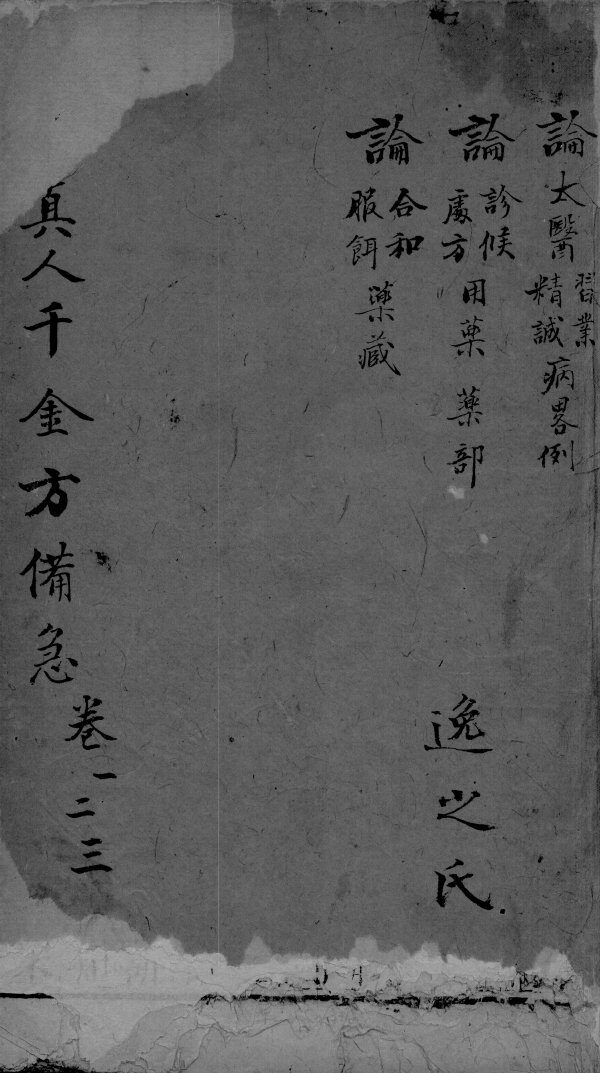 論太醫習業精誠病畧例
論診候處方用藥藥部
論合和服餌藥藏
逸之氏
真人千金方備急卷一二三